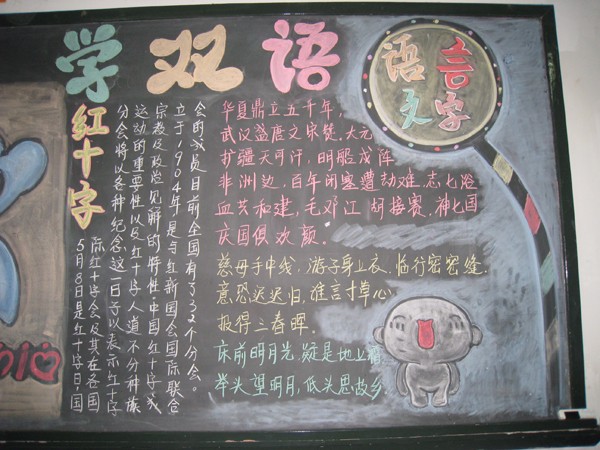 学双语
语言
文字
红十字
5月8日是红十字日,国
际红十字会及其在各国
分会将以各种纪念这一日子以表示红十字
运动的重要性以及红十字人道不分种族
宗教及政治见解的特性.中国红十字会成
立于1904年是与红新国会国际联合
会的成员目前全国有了32个分会。
华夏鼎立五千年,
武汉盛唐文宋赞.大元
扩疆天可汗,明船戍阵
非洲边.百年闭塞遭劫难.志士浴
血共和建,毛邓江胡接赛,神七国
庆国俱欢颜.
慈母手中线,游子身上衣.临行密密缝.
意恐迟迟归,谁言寸草心
报得三春晖.
床前明月光,疑是地上霜.
举头望明月,低头思故乡.